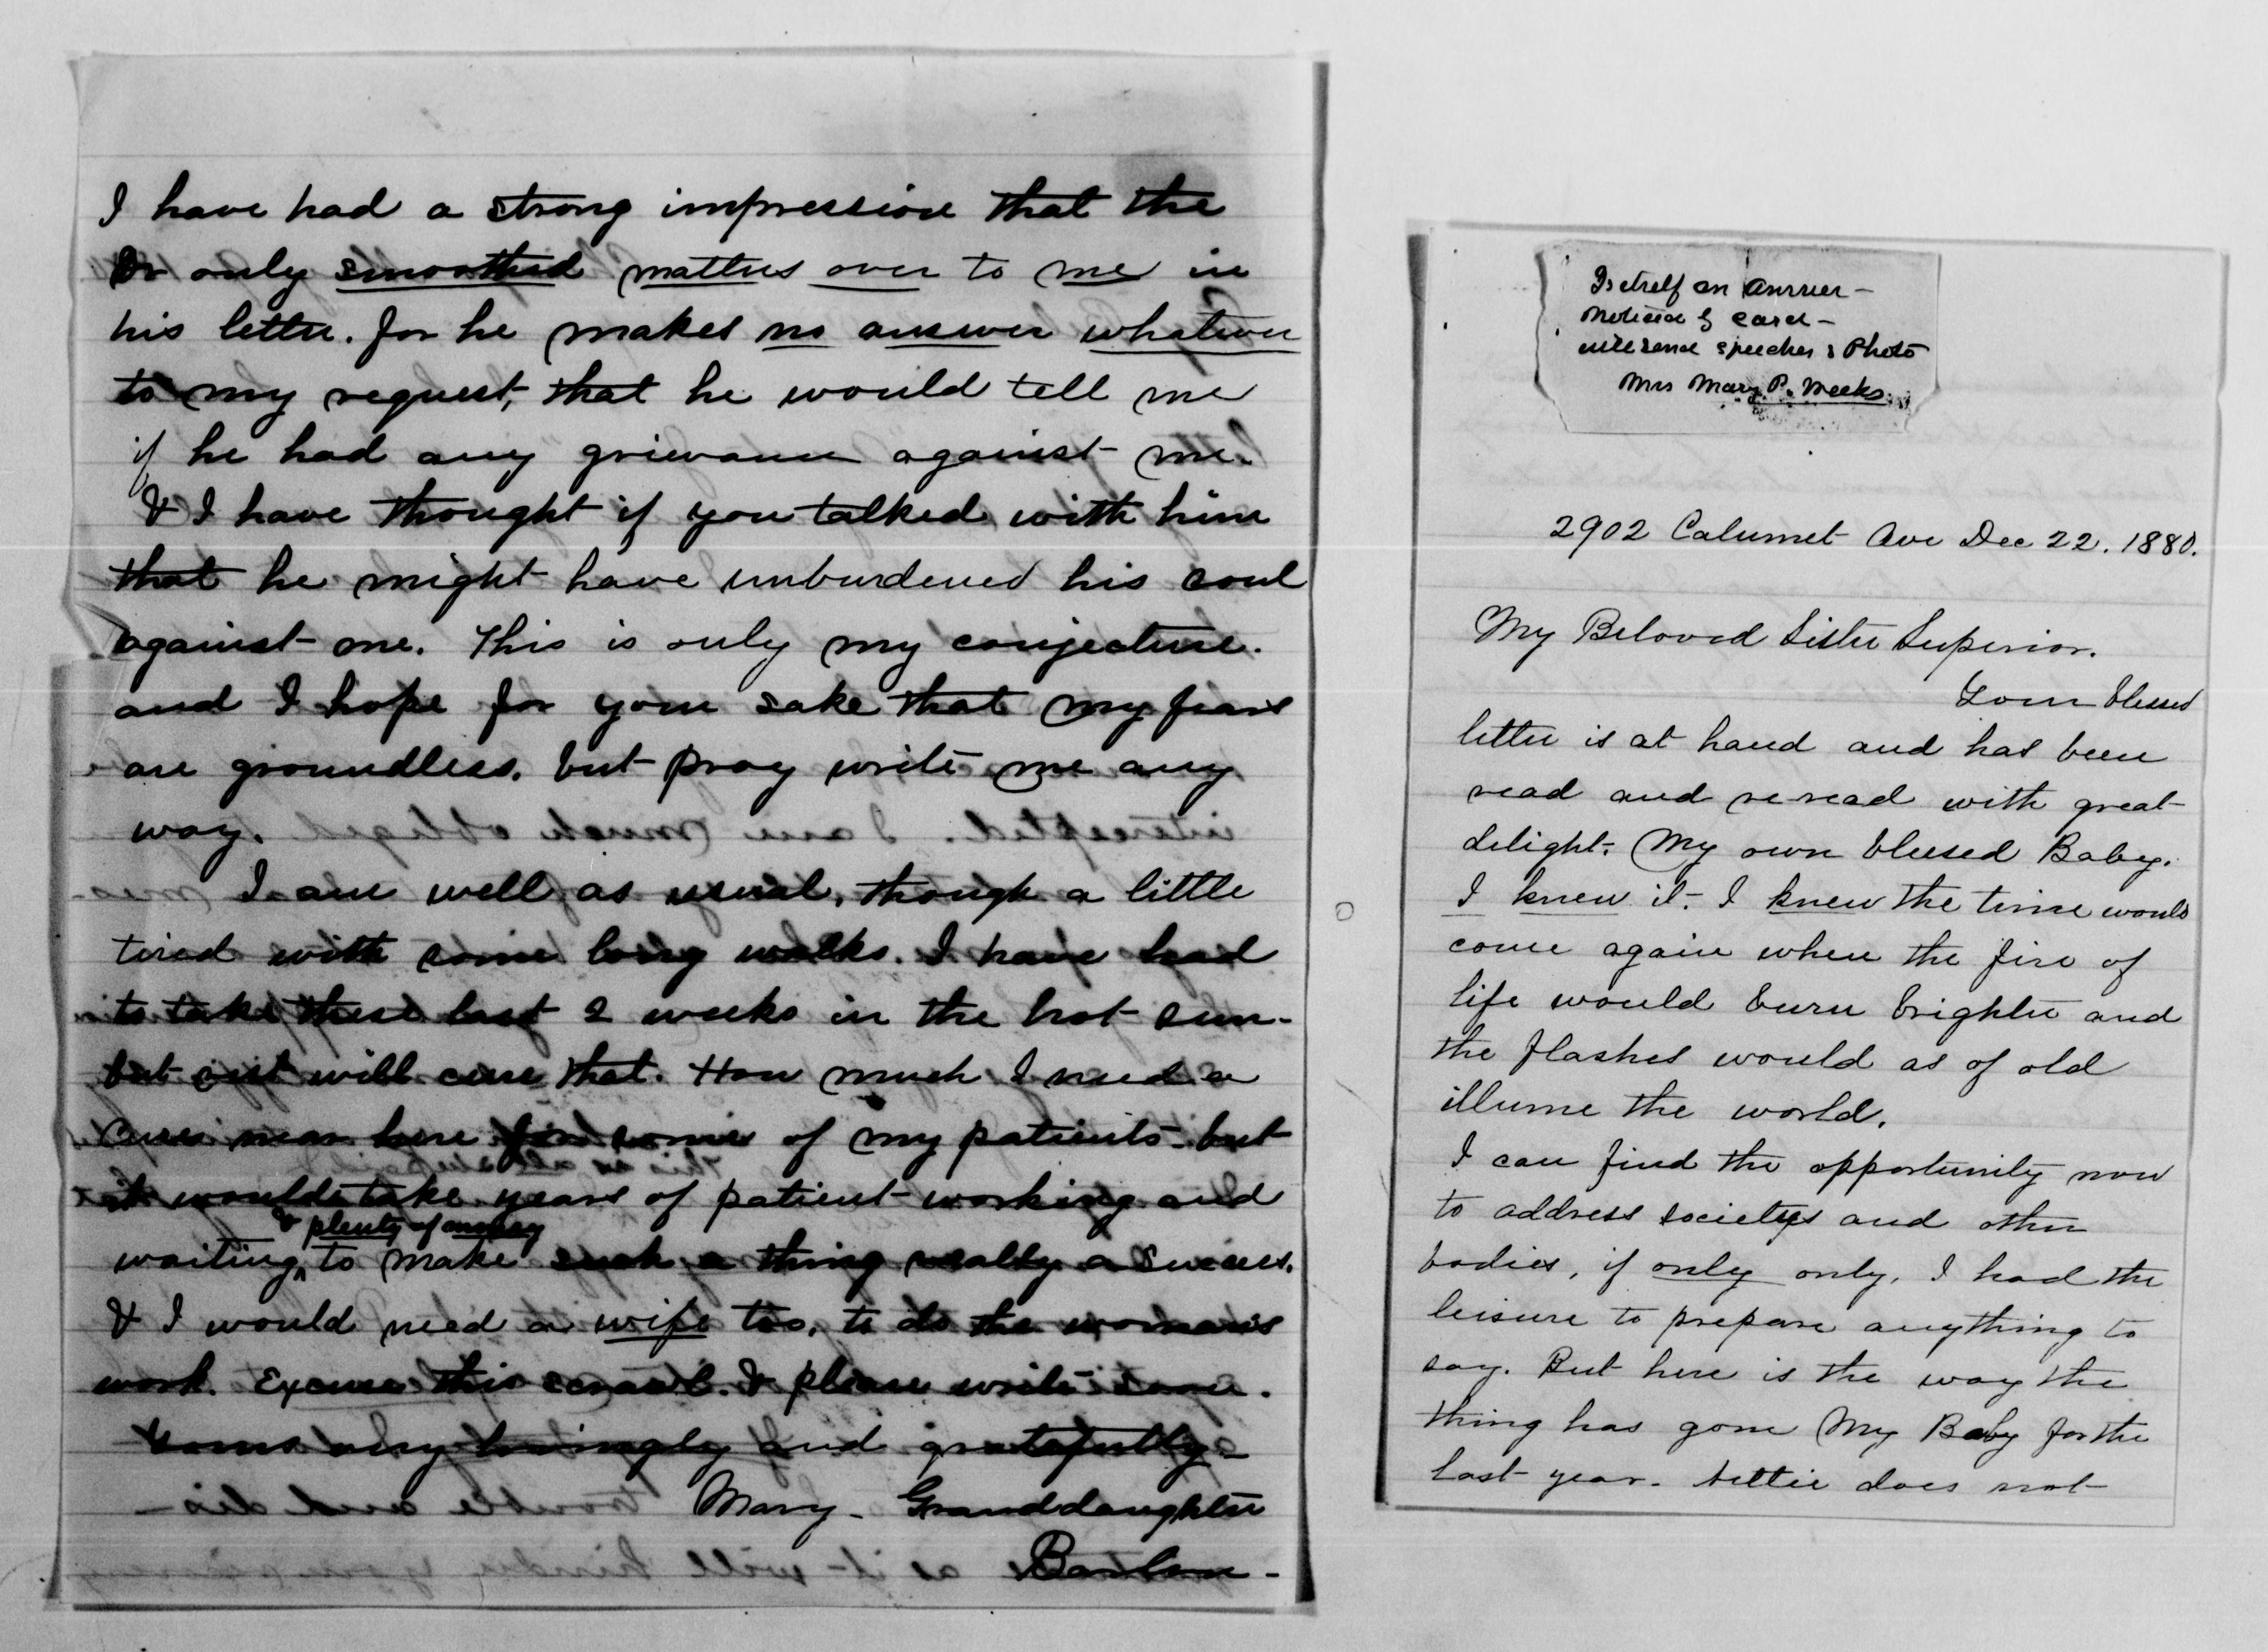 I have had a strong impression that the
Dr only smoothed matters over to me in
his letter. for he makes no answer whatever
to my request, that he would tell me
if he had any grievance against me.
& I have thought if you talked with him
that he might have unburdened his soul
against me. This is only my conjecture.
and I hope for your sake that my fears
are groundless. but pray write me any
way.
I am well as usual, though a little
tired with some long walks. I have had
to take these last 2 weeks in the hot sun-
but rest will cure that. How much I need a
Cure near here for some of my patients. but
it would take years of patient working and
& plenty of money
waiting, to make such a thing really a success.
& I would need a wife too, to do the woman's
work. Excuse this scrawl. & please write soon.
Yours very lovingly and gratefully-
Mary- Granddaughter
Is itself an answer-
Noticed by card-
will send speeches & Photo
Mrs Mary P. Weeks.
2902 Calumet Ave Dec 22. 1880.
My Beloved Sister Superior.
Your blessed
letter is at hand and has been
read and re-read with great
delight. My own blessed Baby.
I knew it- I knew the time would
come again when the fire of
life would burn brighter and
the flashes would as of old
illume the world.
I can find the opportunity now
to address societys and other
bodies, if only only, I had the
leisure to prepare anything to
say. But here is the way the
thing has gone My Baby for the
last year. Nettie does not